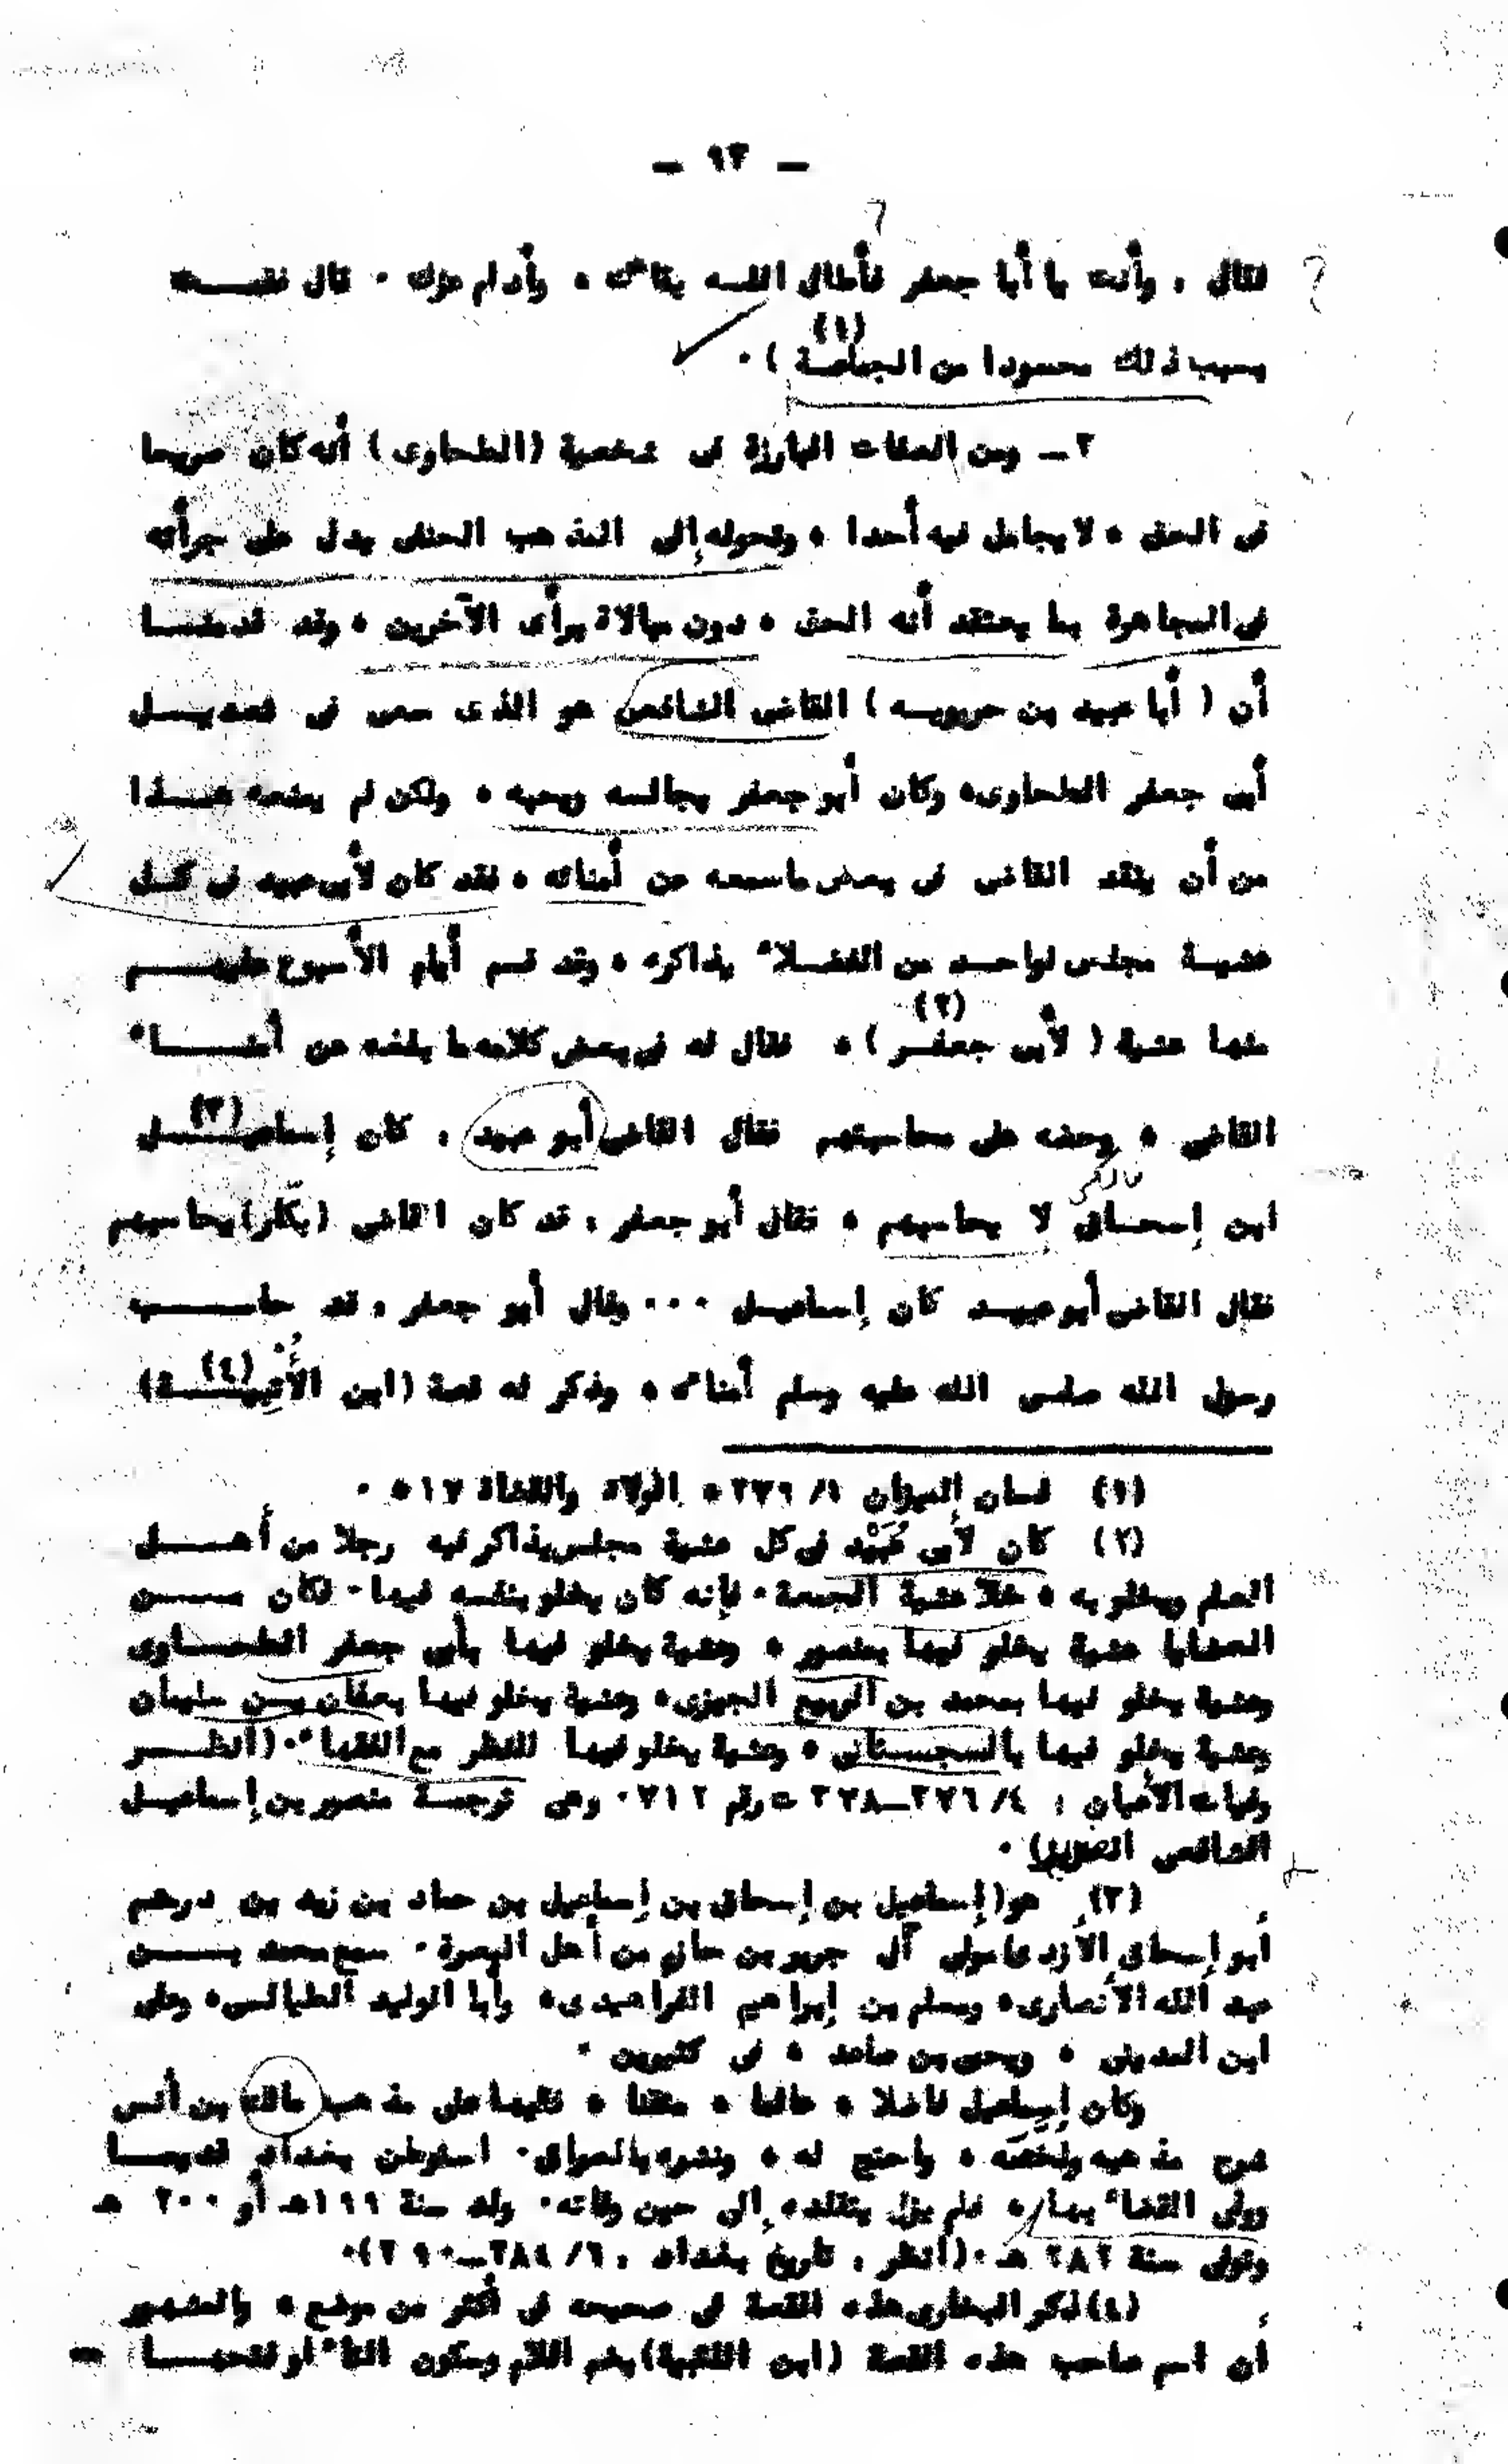 - ٩٣ -
فقال : وأنت يا أبا جعفر فأطال الله بقاءك ، وأدام عزك . قال فقمت
بسبب ذلك محسودا من الجماعة (١) ) .
٢ـ ومن الصفات البارزة فى شخصية (الطحاوى) أنه كان صريحا
فى الحق ، لا يجامل فيه أحدا ، وتحوله إلى المذهب الحنفى يدل على جرأته
فى المجاهرة بما يعتقد أنه الحق ، دون مبالاة برأى الآخرين ، وقد قدمنا
أن ( أبا عبيد بن حربويه ) القاضى الشافعى هو الذى سعى فى تعديل
أبى جعفر الطحاوى، وكان أبو جعفر يجالسه ويحبه ، ولكن لم يمنعه هذا
من أن ينقد القاضى فى بعض ماسمعه عن أمنائه ، فقد كان لأبى عبيد فى كل
عشية مجلس لواحد من الفضلاء يذاكره ، وقد قسم أيام الأسبوع عليهم
منها عشية ( لأبى جعفر ) (٢) ، فقال له فى بعض كلامه ما بلغه عن أمناء
القاضى ، وحضه على محاسبتهم فقال القاضى أبو عبيد : كان إسماعيل (٣)
مالكى
ابن إسحاق لا يحاسبهم ، فقال أبو جعفر : قد كان القاضى (بكّار) يحاسبهم
فقال القاضى أبو عبيد كان إسماعيل ... وقال أبو جعفر : قد حاسب
رسول الله صلى الله عليه وسلم أمناءه ، وذكر له قصة (ابن الأُتْبِيـة) (٤)
(١) لسان الميزان ١/ ٢٧٩، الولاة والقضاة ٥١٧ .
(٢) كان لأبى عُبَيْد فى كل عشية مجلس يذاكر فيه رجلا من أهل
العلم ويخلو به ، خلا عشية الجمعة . فإنه كان يخلو بنفسه فيها . فكان من
العشايا عشية يخلو فيها بمنصور ، وعشية يخلو فيها بأبى جعفر الطحاوى
وعشية يخلو فيها بمحمد بن الربيع الجيزى، وعشية يخلو فيها بعفان بن سليمان
وعشية يخلو فيها بالسجستانى ، وعشية يخلو فيها للنظر مع الفقهاء . (انظر
وفيات الأعيان : ٤/ ٣٧٦ـ٣٧٨ ت رقم ٧١٢ . وهى ترجمة منصور بن إسماعيل
الشافعى الضرير) .
(٣) هو (إسماعيل بن إسحاق بن إسماعيل بن حماد بن زيد بن درهم
أبو إسحاق الأزدى) مولى آل جرير بن حازم من أهل البصرة . سمع محمد بن
عبد الله الأنصارى، ومسلم بن إبراهيم الفراهيدى، وأبا الوليد الطيالسى، وعلى
ابن المدينى ، ويحيى بن صاعد ، فى كثيرين .
وكان إسماعيل فاضلا ، عالما ، متقنا ، فقيها على مذهب مالك بن أنس
شرح مذهبه ولخصه ، واحتج له ، ونشره بالعراق . استوطن بغداد قديما
وولى القضاء بها ، فلم يزل يتقلده إلى حين وفاته . ولد سنة ١٩٩هـ أو ٢٠٠ هـ
وتوفى سنة ٢٨٢ هـ . (انظر : تاريخ بغداد : ٦/ ٢٨٤ـ٢٩٠) .
(٤) ذكر البخارى هذه القصة فى صحيحه فى أكثر من موضع ، والمشهور
أن اسم صاحب هذه القصة (ابن اللتبية) بضم اللام وسكون التاء أو فتحها =